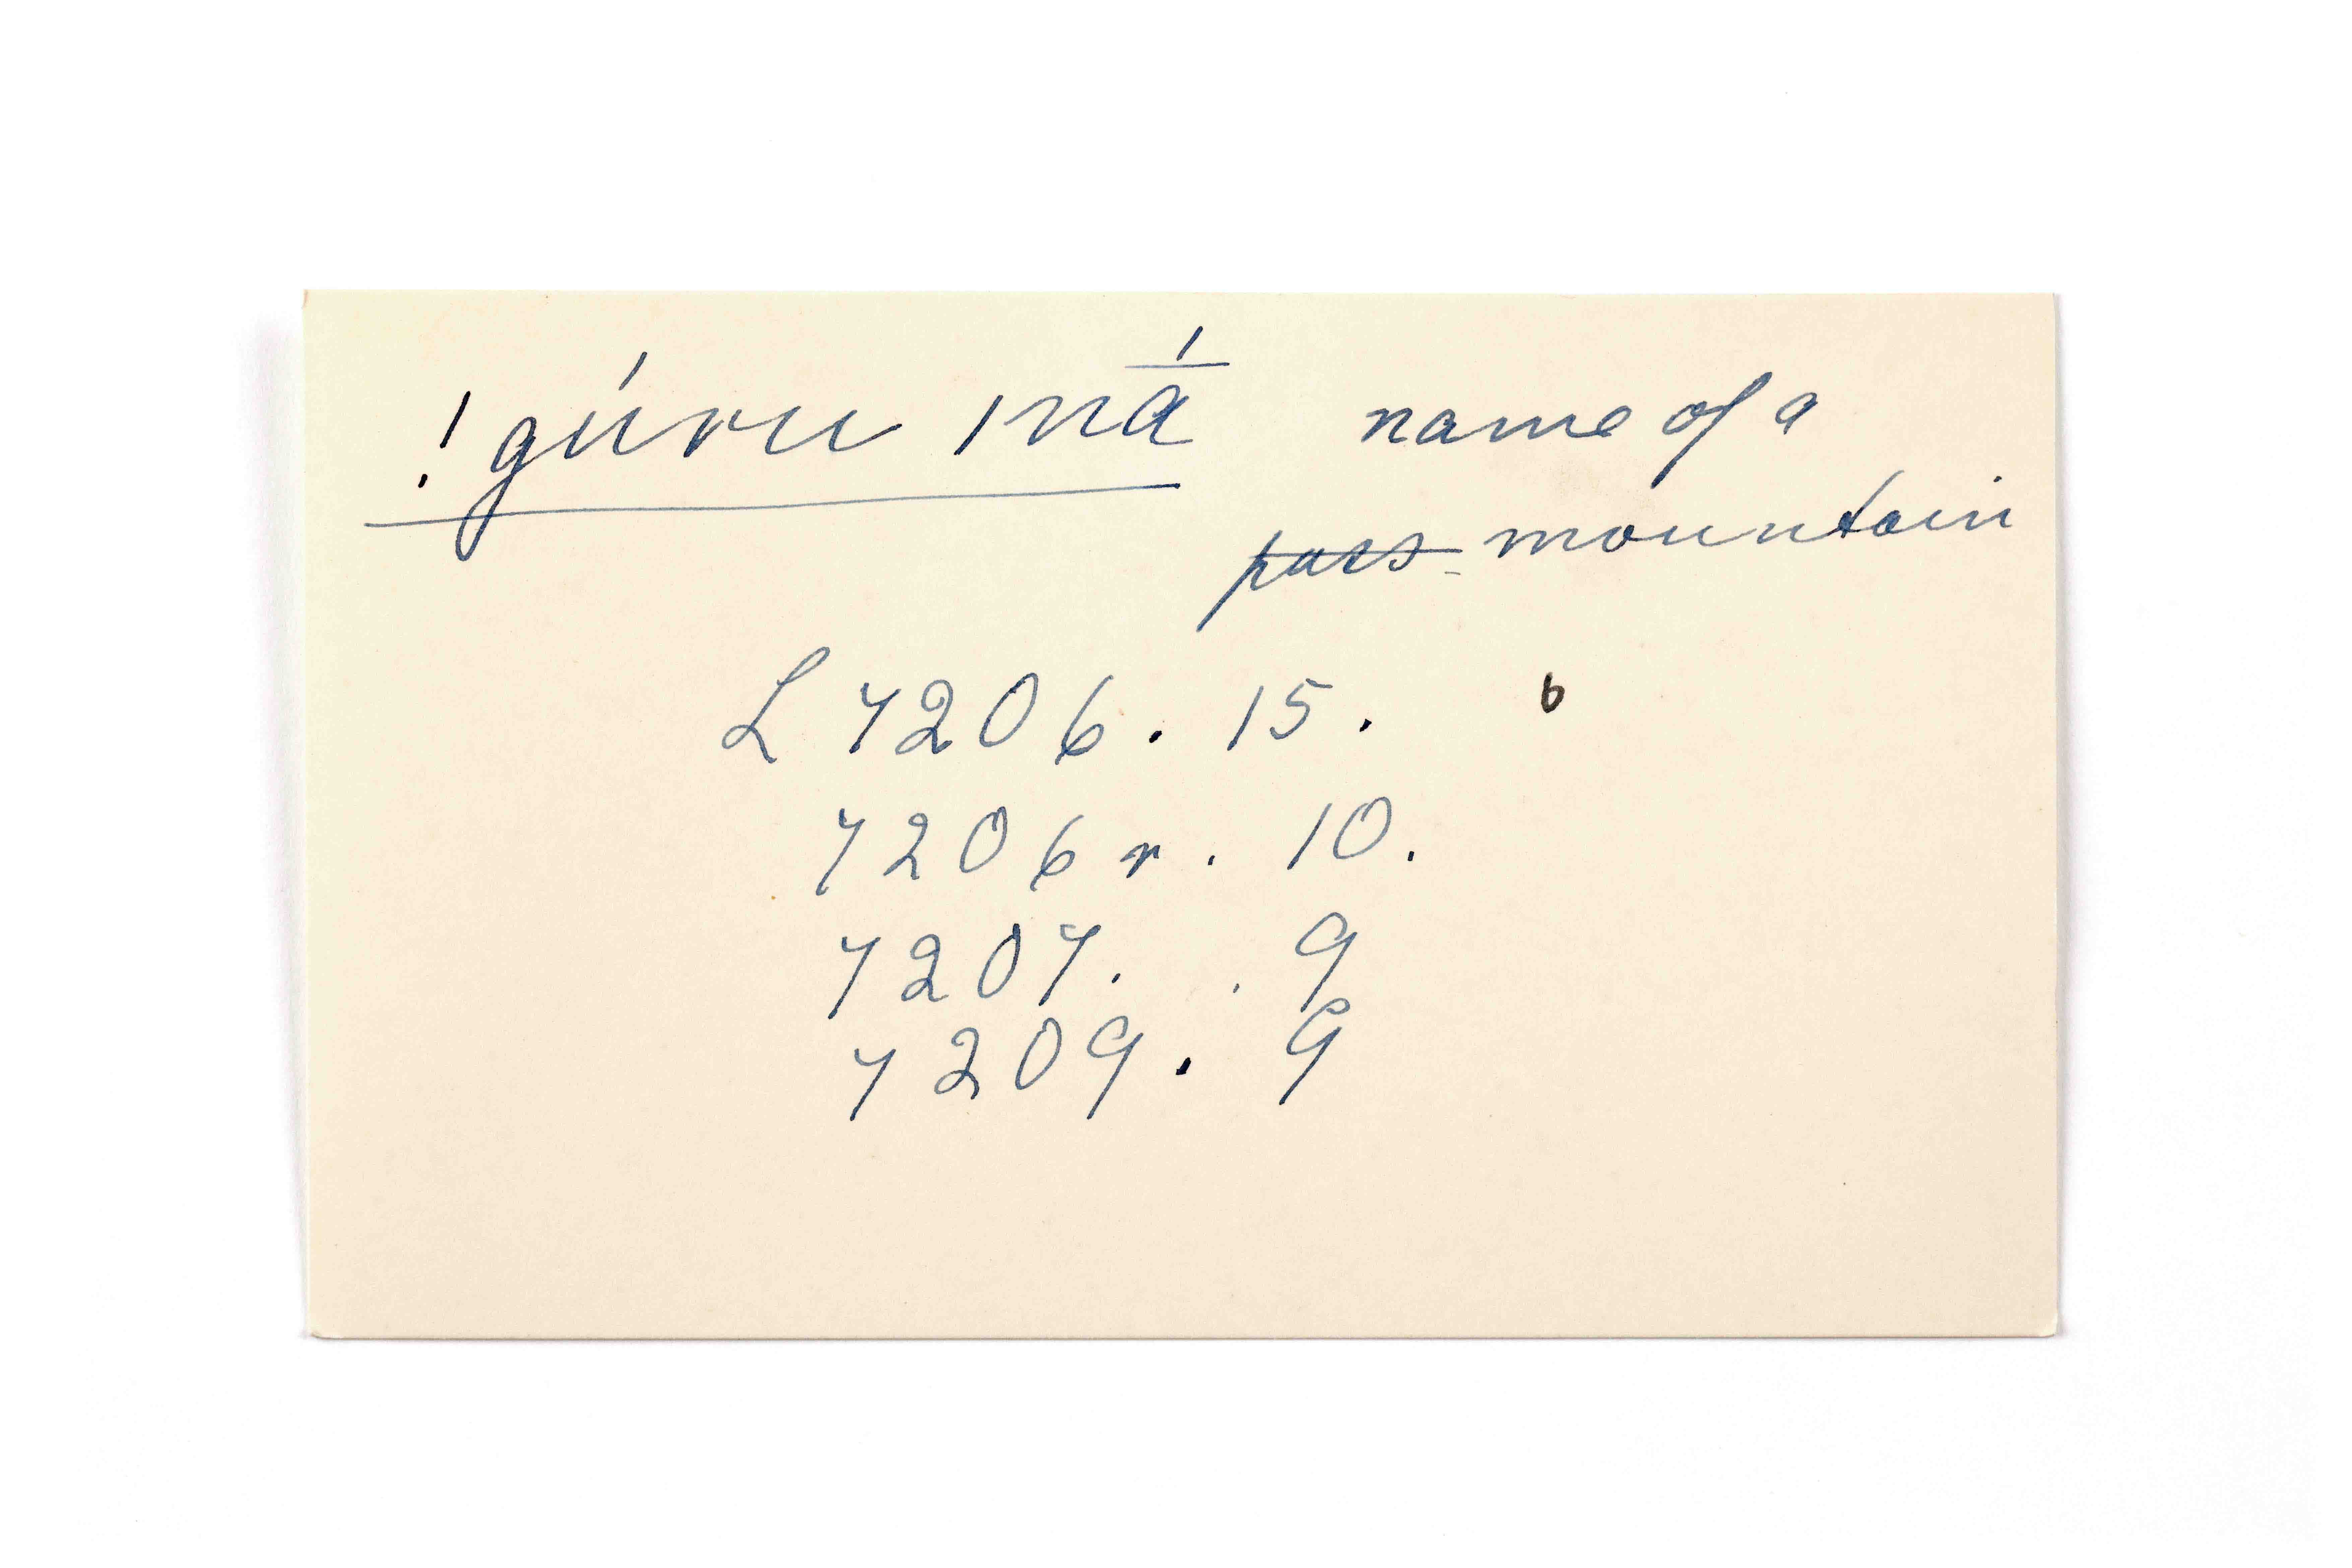 !gúru ǀnā́ name of a
~~pass~~ mountain
L 7206. 15. b
7206 r. 10.
7207. . 9
7209. 9